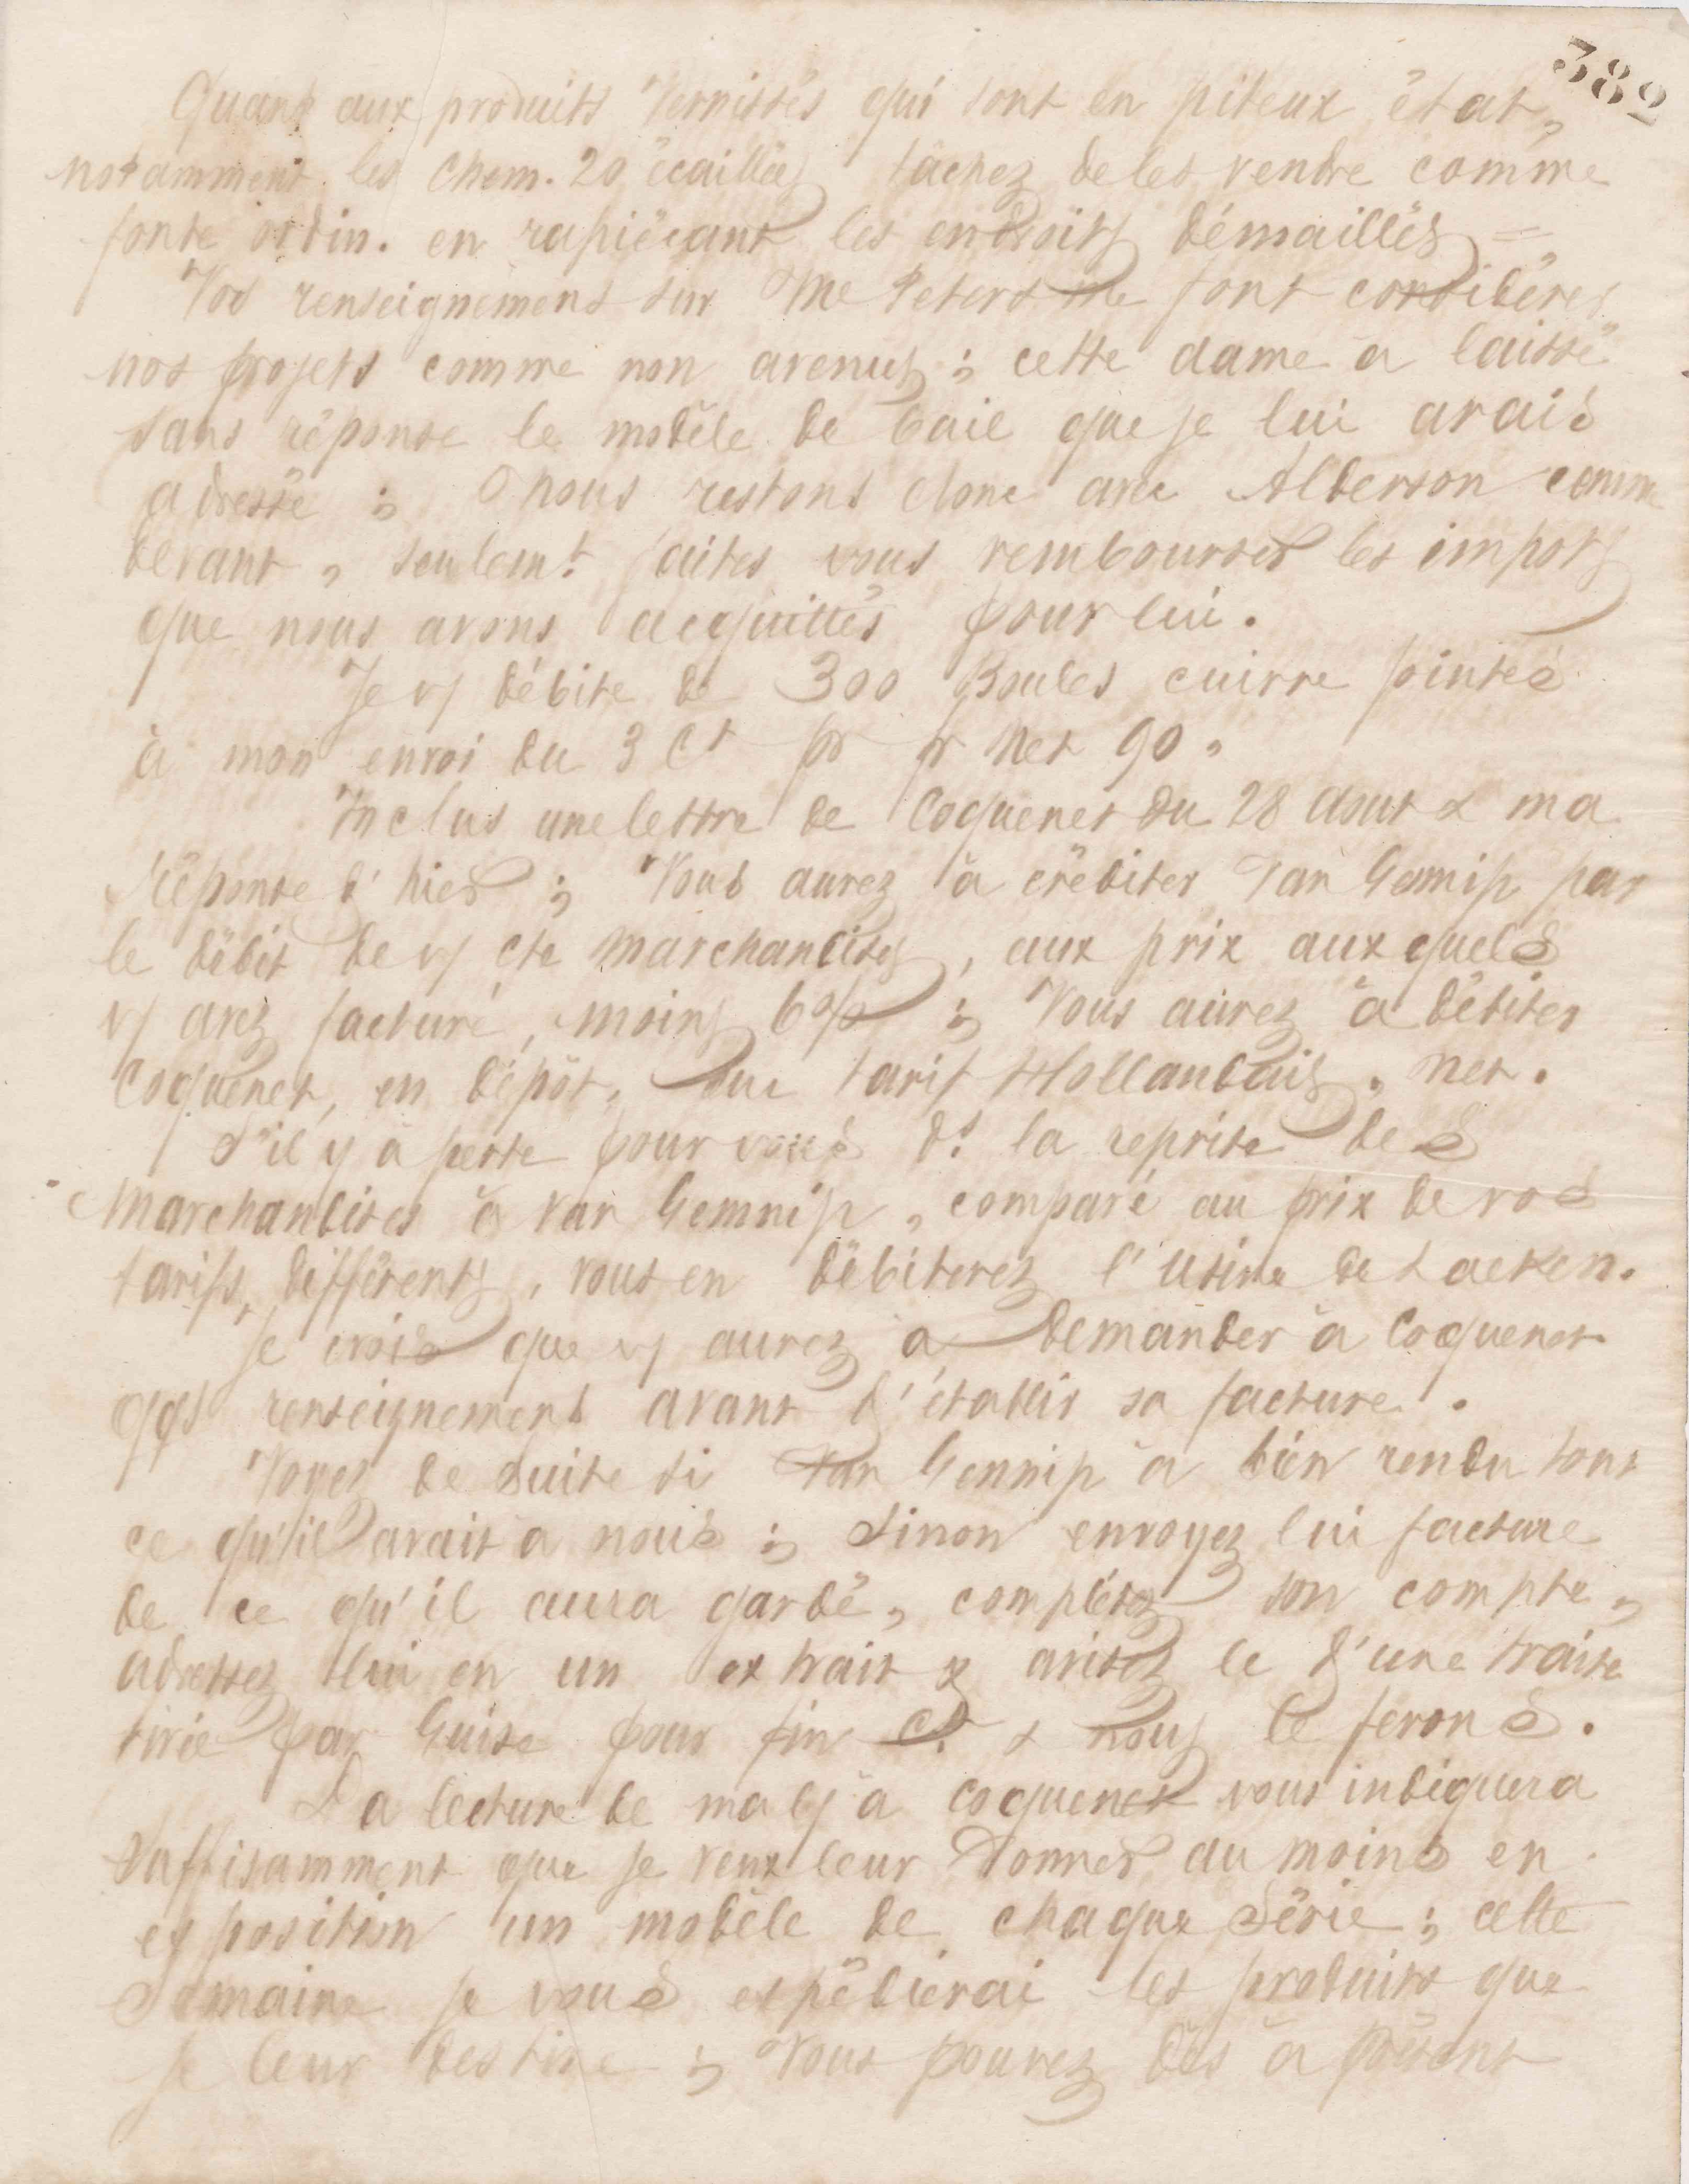 382
Quant aux produits vernissés qui sont en piteux état,
notamment les Chem. 20 écaillées, tâchez de les vendre comme
fonte ordin. en rapiéçant les endroits démaillés =
Vos renseignements sur Me Peters me font considérer
nos projets comme non avenus ; cette dame a laissé
sans réponse le modèle de bail que je lui avais
adressé ; nous restons donc avec Alderson comme
devant, seulemt faites vous rembourser les impots
que nous avons acquittés pour lui.
Je v/ débite de 300 Boules cuivre jointes
à mon envoi du 3 Ct pr fr net 90.
Inclus une lettre de Coquenet du 28 aout & ma
Réponse d'hier ; Vous aurez à créditer Van Gennip par
le débit de v/ cte marchandises, aux prix auxquels
v/ avez facturé, moins 6% ; Vous aurez à débiter
Coquenet, en dépôt, au tarif Hollandais, net.
S'il y a perte pour vous ds la reprise des
Marchandises à Van Gennip, comparé au prix de vos
tarifs différents, vous en débiterez l'Usine de Laeken.
Je crois que v/ aurez à demander à Coquenet
qqs renseignements avant d'établir sa facture.
Voyez de suite si Van Gennip a bien rendu tout
ce qu'il avait à nous ; Sinon envoyez lui facture
de ce qu'il aura gardé, complétez son compte,
adressez lui en un extrait & avisez le d'une traite
tirée par Guise pour fin Ct & nous le ferons.
La lecture de ma l/ à Coquenet vous indiquera
Suffisamment que je veux leur donner au moins en
exposition un modèle de chaque Série ; cette
Semaine je vous expédierai les produits que
je leur destine ; Vous pouvez dès à présent